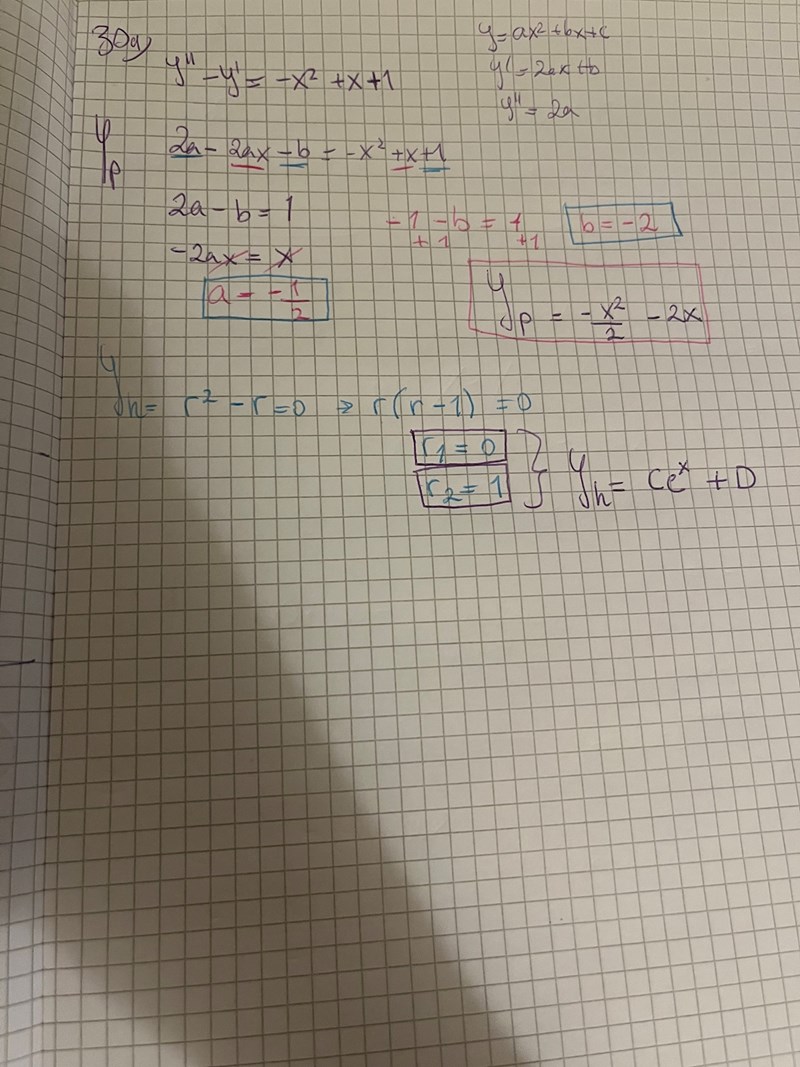 30a)
y'' - y' = -x² + x + 1
y = ax² + bx + c
y' = 2ax + b
y'' = 2a
yp 2a - 2ax - b = -x² + x + 1
2a - b = 1
-1 - b = 1
+1 +1
b = -2
-2ax = x
a = -1/2
yp = -x²/2 - 2x
yh = r² - r = 0 → r(r - 1) = 0
r₁ = 0
r₂ = 1 } yh = Ce^x + D